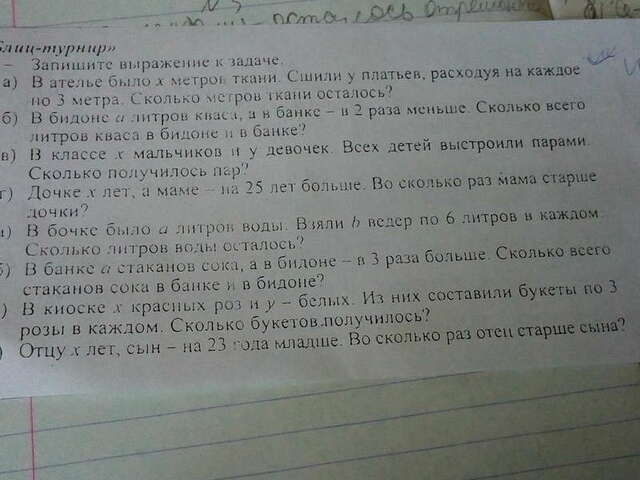 N 3
осталось
«Блиц-турнир»
– Запишите выражение к задаче.
а) В ателье было x метров ткани. Сшили y платьев, расходуя на каждое
по 3 метра. Сколько метров ткани осталось?
б) В бидоне a литров кваса, а в банке – в 2 раза меньше. Сколько всего
литров кваса в бидоне и в банке?
в) В классе x мальчиков и y девочек. Всех детей выстроили парами.
Сколько получилось пар?
г) Дочке x лет, а маме – на 25 лет больше. Во сколько раз мама старше
дочки?
) В бочке было a литров воды. Взяли b ведер по 6 литров в каждом.
Сколько литров воды осталось?
б) В банке a стаканов сока, а в бидоне – в 3 раза больше. Сколько всего
стаканов сока в банке и в бидоне?
) В киоске x красных роз и y – белых. Из них составили букеты по 3
розы в каждом. Сколько букетов получилось?
) Отцу x лет, сын – на 23 года младше. Во сколько раз отец старше сына?